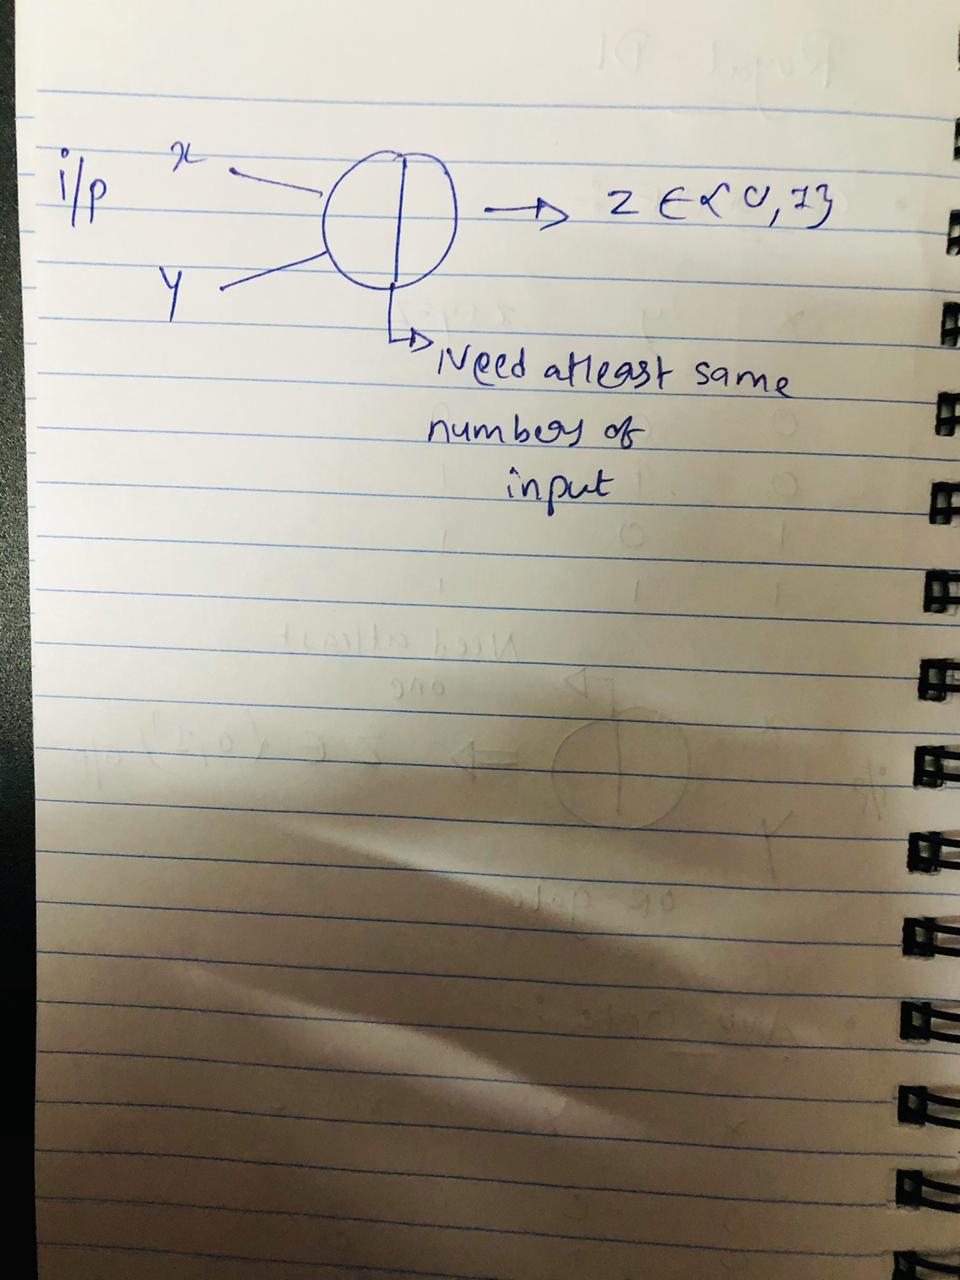 i/p x
y
→ z ∈ {0,1}
Need atleast same
numbers of
input